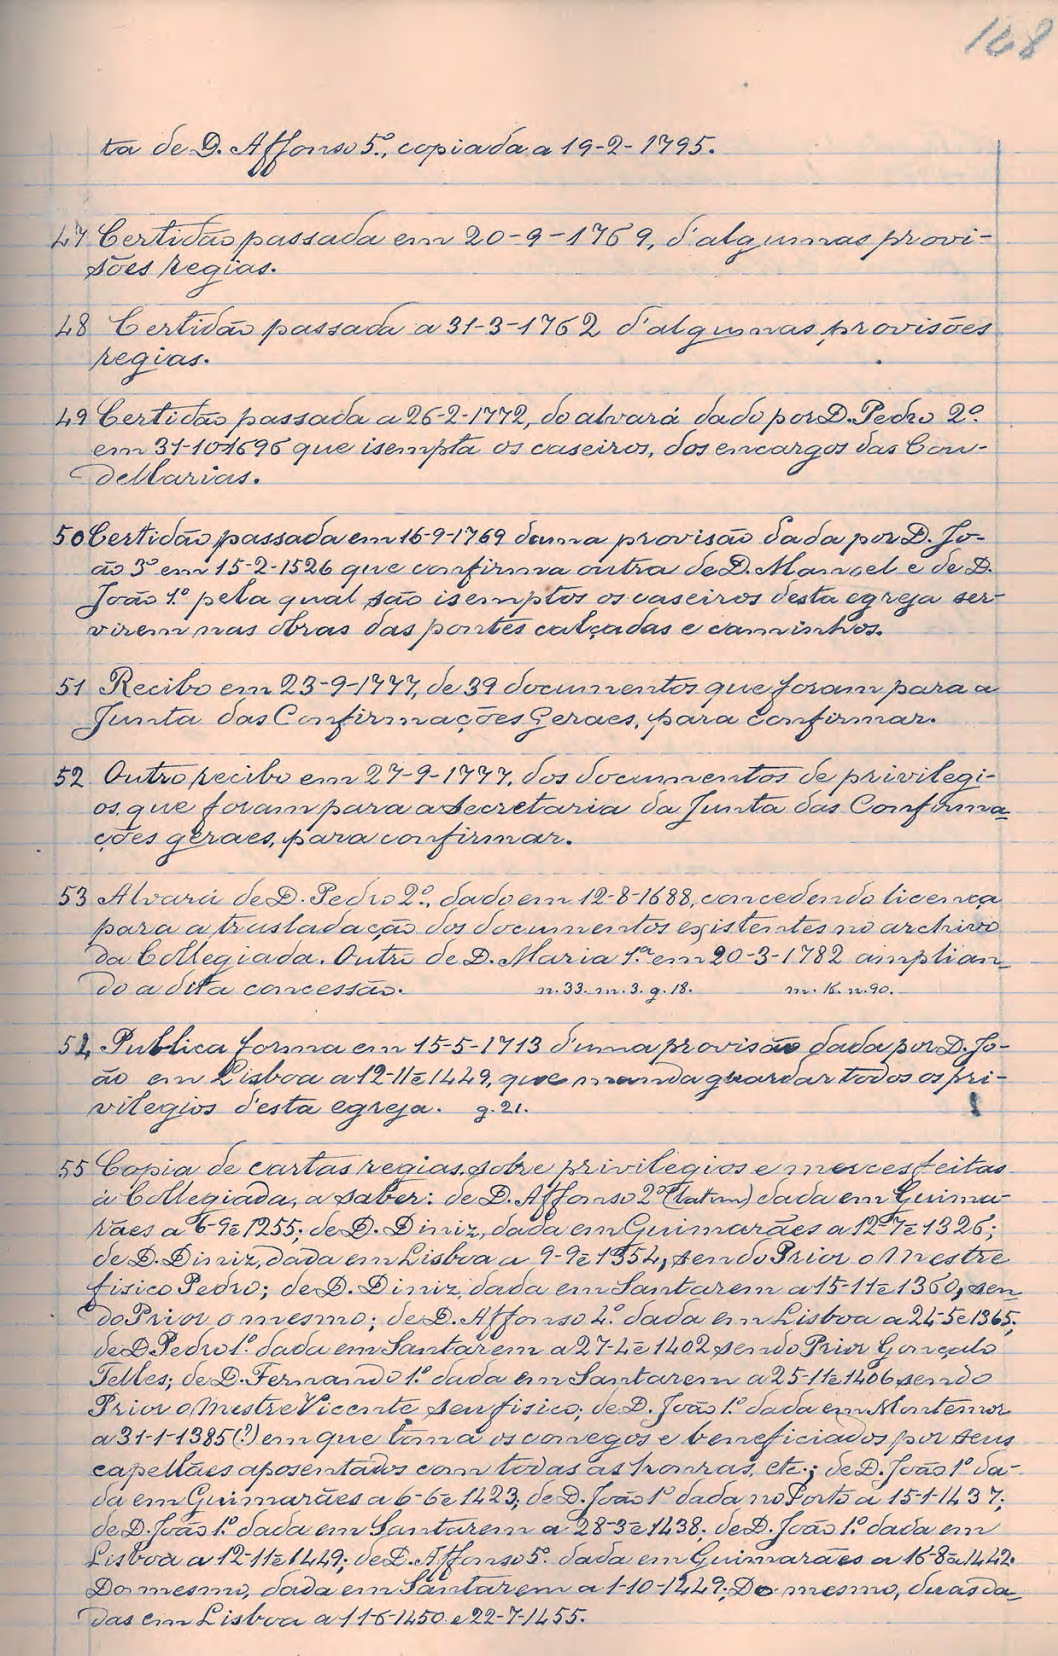 168
ta de D. Affonso 5º, copiada a 19-2-1795.
47 Certidão passada em 20-9-1769, d'algumas provi-
sões regias.
48 Certidão passada a 31-3-1762 d'algumas provisões
regias.
49 Certidão passada a 26-2-1772, do alvará dado por D. Pedro 2º.
em 31-10-1696 que isempta os caseiros, dos encargos das Cou-
dellarias.
50 Certidão passada em 16-9-1769 duma provisão dada por D. Jo-
ão 3º em 15-2-1526 que confirma outra de D. Manoel e de D.
João 1.º pela qual são isemptos os caseiros desta egreja ser-
virem nas obras das pontes calçadas e caminhos.
51 Recibo em 23-9-1777, de 39 documentos que foram para a
Junta das Confirmações Geraes, para confirmar.
52 Outro recibo em 27-9-1777, dos documentos de privilegi-
os, que foram para a Secretaria da Junta das Confirma-
ções geraes, para confirmar.
53 Alvará de D. Pedro 2º., dado em 12-8-1688, concedendo licença
para a trasladação dos documentos existentes no archivo
da Collegiada. Outro de D. Maria 1.ª em 20-3-1782 amplian-
do a dita concessão. n. 33. m. 3. g. 18. m. 16. n. 90.
54 Publica forma em 15-5-1713 d'uma provisão dada por D. Jo-
ão em Lisboa a 12-11 e 1449, que manda guardar todos os pri-
vilegios d'esta egreja. g. 21.
55 Copia de cartas regias, sobre privilegios e merces feitas
á Collegiada, a saber: de D. Affonso 2º (latim) dada em Guima-
rães a 6-9 e 1255; de D. Diniz, dada em Guimarães a 12-7 e 1326;
de D. Diniz, dada em Lisboa a 9-9 e 1354, sendo Prior o Mestre
fisico Pedro; de D. Diniz, dada em Santarem a 15-11 e 1360, sen-
do Prior o mesmo; de D. Affonso 4.º dada em Lisboa a 24-5 e 1365;
de D. Pedro 1.º dada em Santarem a 27-4 e 1402 sendo Prior Gonçalo
Telles; de D. Fernando 1.º dada em Santarem a 25-11 e 1406 sendo
Prior o Mestre Vicente seu fisico; de D. João 1.º dada em Montemor
a 31-1-1385 (?) em que toma os conegos e beneficiados por seus
capellães aposentados com todas as honras, etc.; de D. João 1º da-
da em Guimarães a 6-6 e 1423; de D. João 1º dada no Porto a 15-1-1437;
de D. João 1.º dada em Santarem a 28-3 e 1438; de D. João 1.º dada em
Lisboa a 12-11 e 1449; de D. Affonso 5º. dada em Guimarães a 16-8 a 1442.
Do mesmo, dada em Santarem a 1-10-1449; Do mesmo, duas da-
das em Lisboa a 11-6-1450 e 22-7-1455.